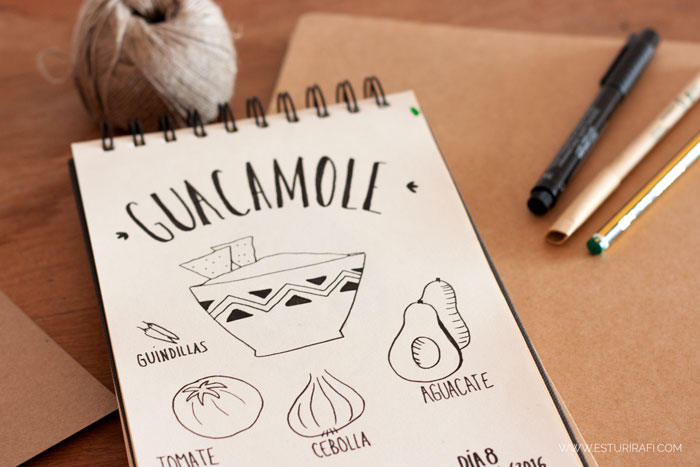 GUACAMOLE
GUINDILLAS
AGUACATE
TOMATE
CEBOLLA
DÍA 8
/2016
WWW.ESTURIRAFI.COM